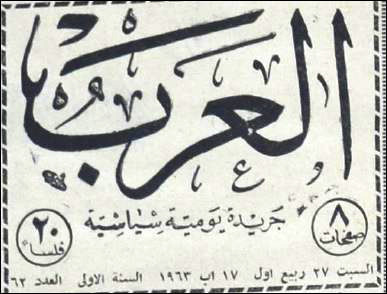 العرب
جريدة يومية سياسية
٨ صفحات
٢٠ فلسا
السبت ٢٧ ربيع اول ١٧ اب ١٩٦٣ السنة الاولى العدد ٦٢